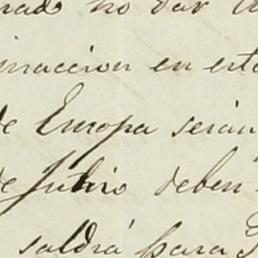 no dar
en est
de Europa serán
de Julio deben
saldrá para